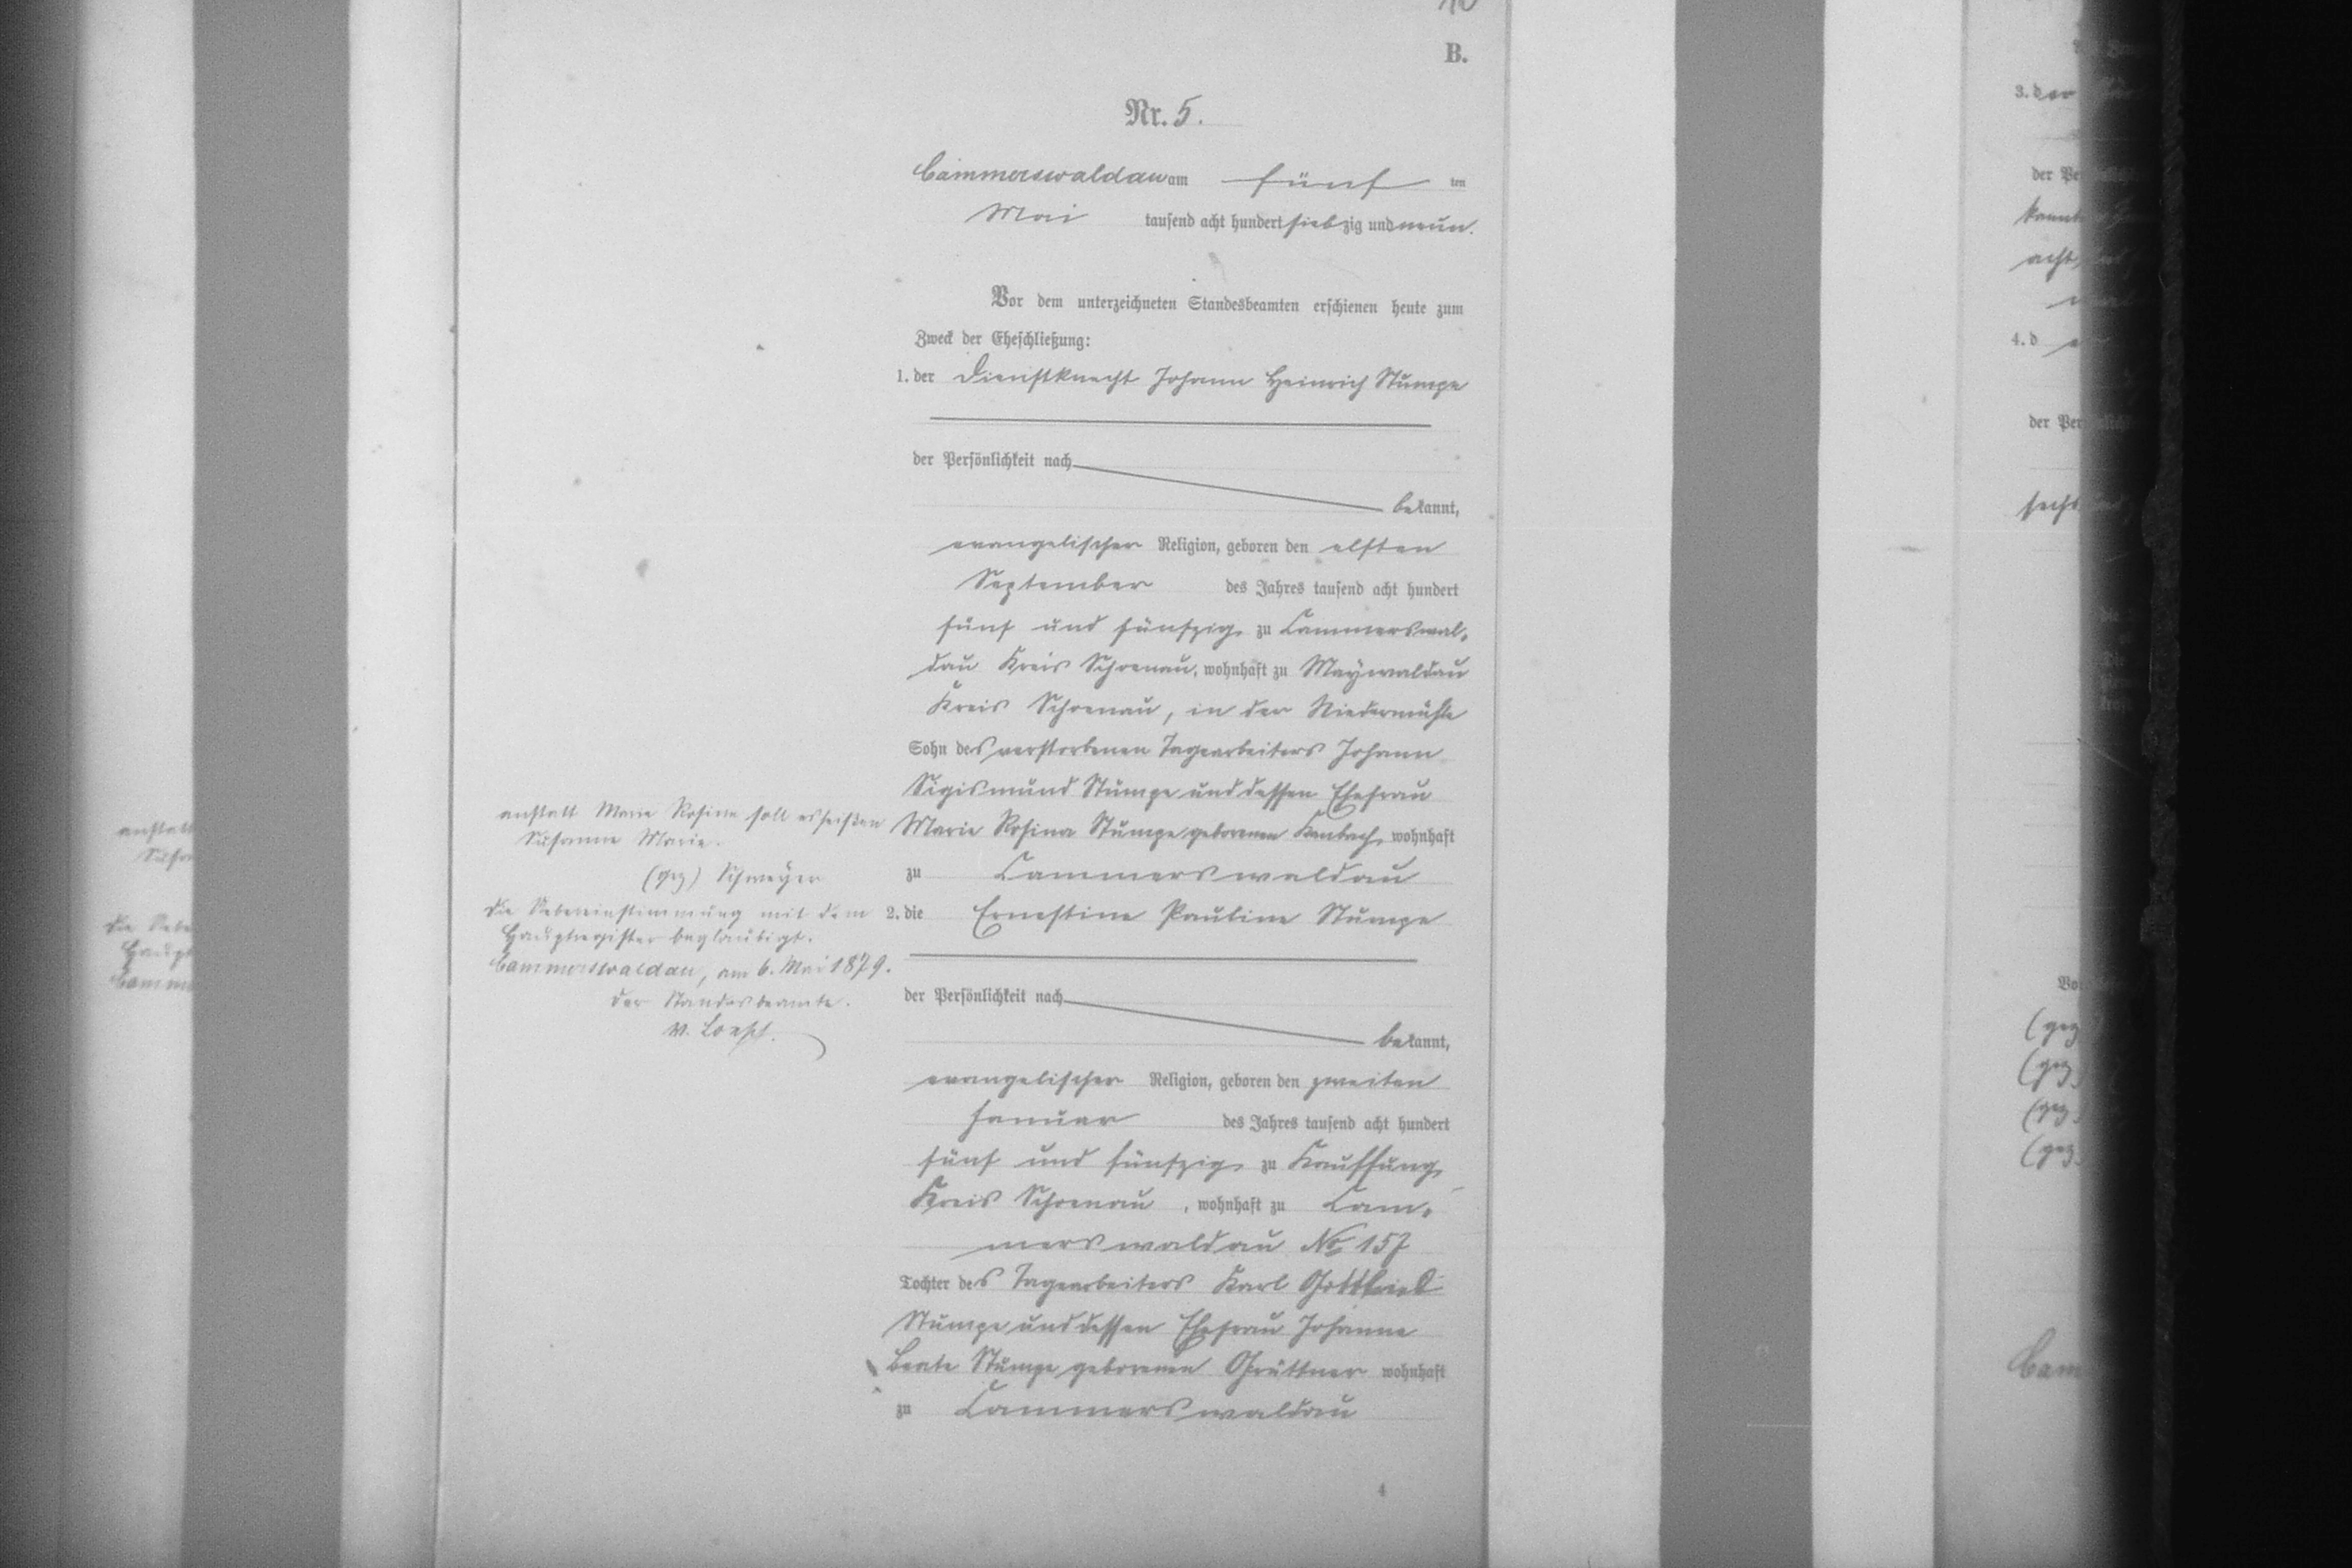 B.
Nr. 5.
Cammerswaldau am fünf ten
Mai tausend acht hundert siebzig und neun.
Vor dem unterzeichneten Standesbeamten erschienen heute zum
Zweck der Eheschließung:
1. der Dienstknecht Johann Heinrich Stumpe
der Persönlichkeit nach
bekannt,
evangelischer Religion, geboren den elften
September des Jahres tausend acht hundert
fünf und fünfzig zu Cammerswal-
dau Kreis Schoenau, wohnhaft zu Maywaldau
Kreis Schoenau, in der Niedermühle
Sohn des verstorbenen Tagearbeiters Johann
Sigismund Stumpe und dessen Ehefrau
Marie Rosina Stumpe geborenen wohnhaft
zu Cammerswaldau
anstatt Marie Rosina soll es heißen
Susanne Marie.
(gez) Schmeyer
Die Uebereinstimmung mit dem
Hauptregister beglaubigt.
Cammerswaldau, am 6. Mai 1879.
Der Standesbeamte.
v. Loesch.
2. die Ernestine Pauline Stumpe
der Persönlichkeit nach
bekannt,
evangelischer Religion, geboren den zweiten
Januar des Jahres tausend acht hundert
fünf und fünfzig zu Kauffung,
Kreis Schoenau, wohnhaft zu Cam-
merswaldau No 157
Tochter des Tagearbeiters Karl Gottfried
Stumpe und dessen Ehefrau Johanne
Beate Stumpe geborenen Grüttner wohnhaft
zu Cammerswaldau
4
3. der
der Pe
acht
4. d
der Per
sechs
Vo
(gez
(gez.
(gez.
(gez.
Cam